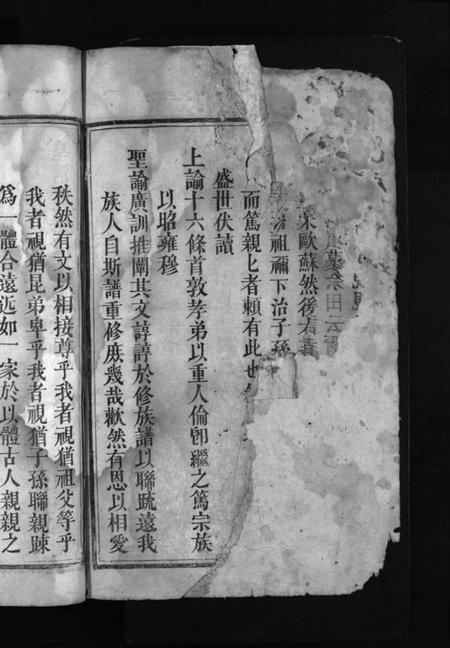 宋歐蘇然後
祖禰下治子孫
而篤親匕者頼有此也
盛世伏讀
上諭十六條首敦孝弟以重人倫卽繼之篤宗族
以昭雍穆
聖諭廣訓推闡其文諄諄於修族譜以聯疏遠我
族人自斯譜重修庶幾哉歡然有恩以相愛
秩然有文以相接尊乎我者視猶祖父等乎
我者視猶昆弟卑乎我者視猶子孫聯親踈
爲一體合遠近如一家於以體古人親親之